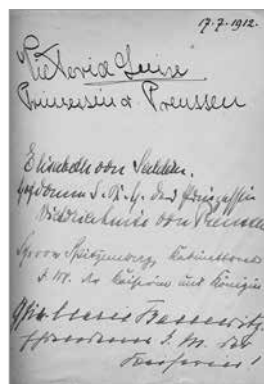 17.7.1912.
Victoria Luise
Prinzessin v. Preussen
Elisabeth von Saldern
Hofdame I. K. H. der Prinzessin
von
Spitzemberg, Kabinettsrat
I. M. der Kaiserin und Königin
Bassewitz
Hofdame I. M. der
Kaiserin!